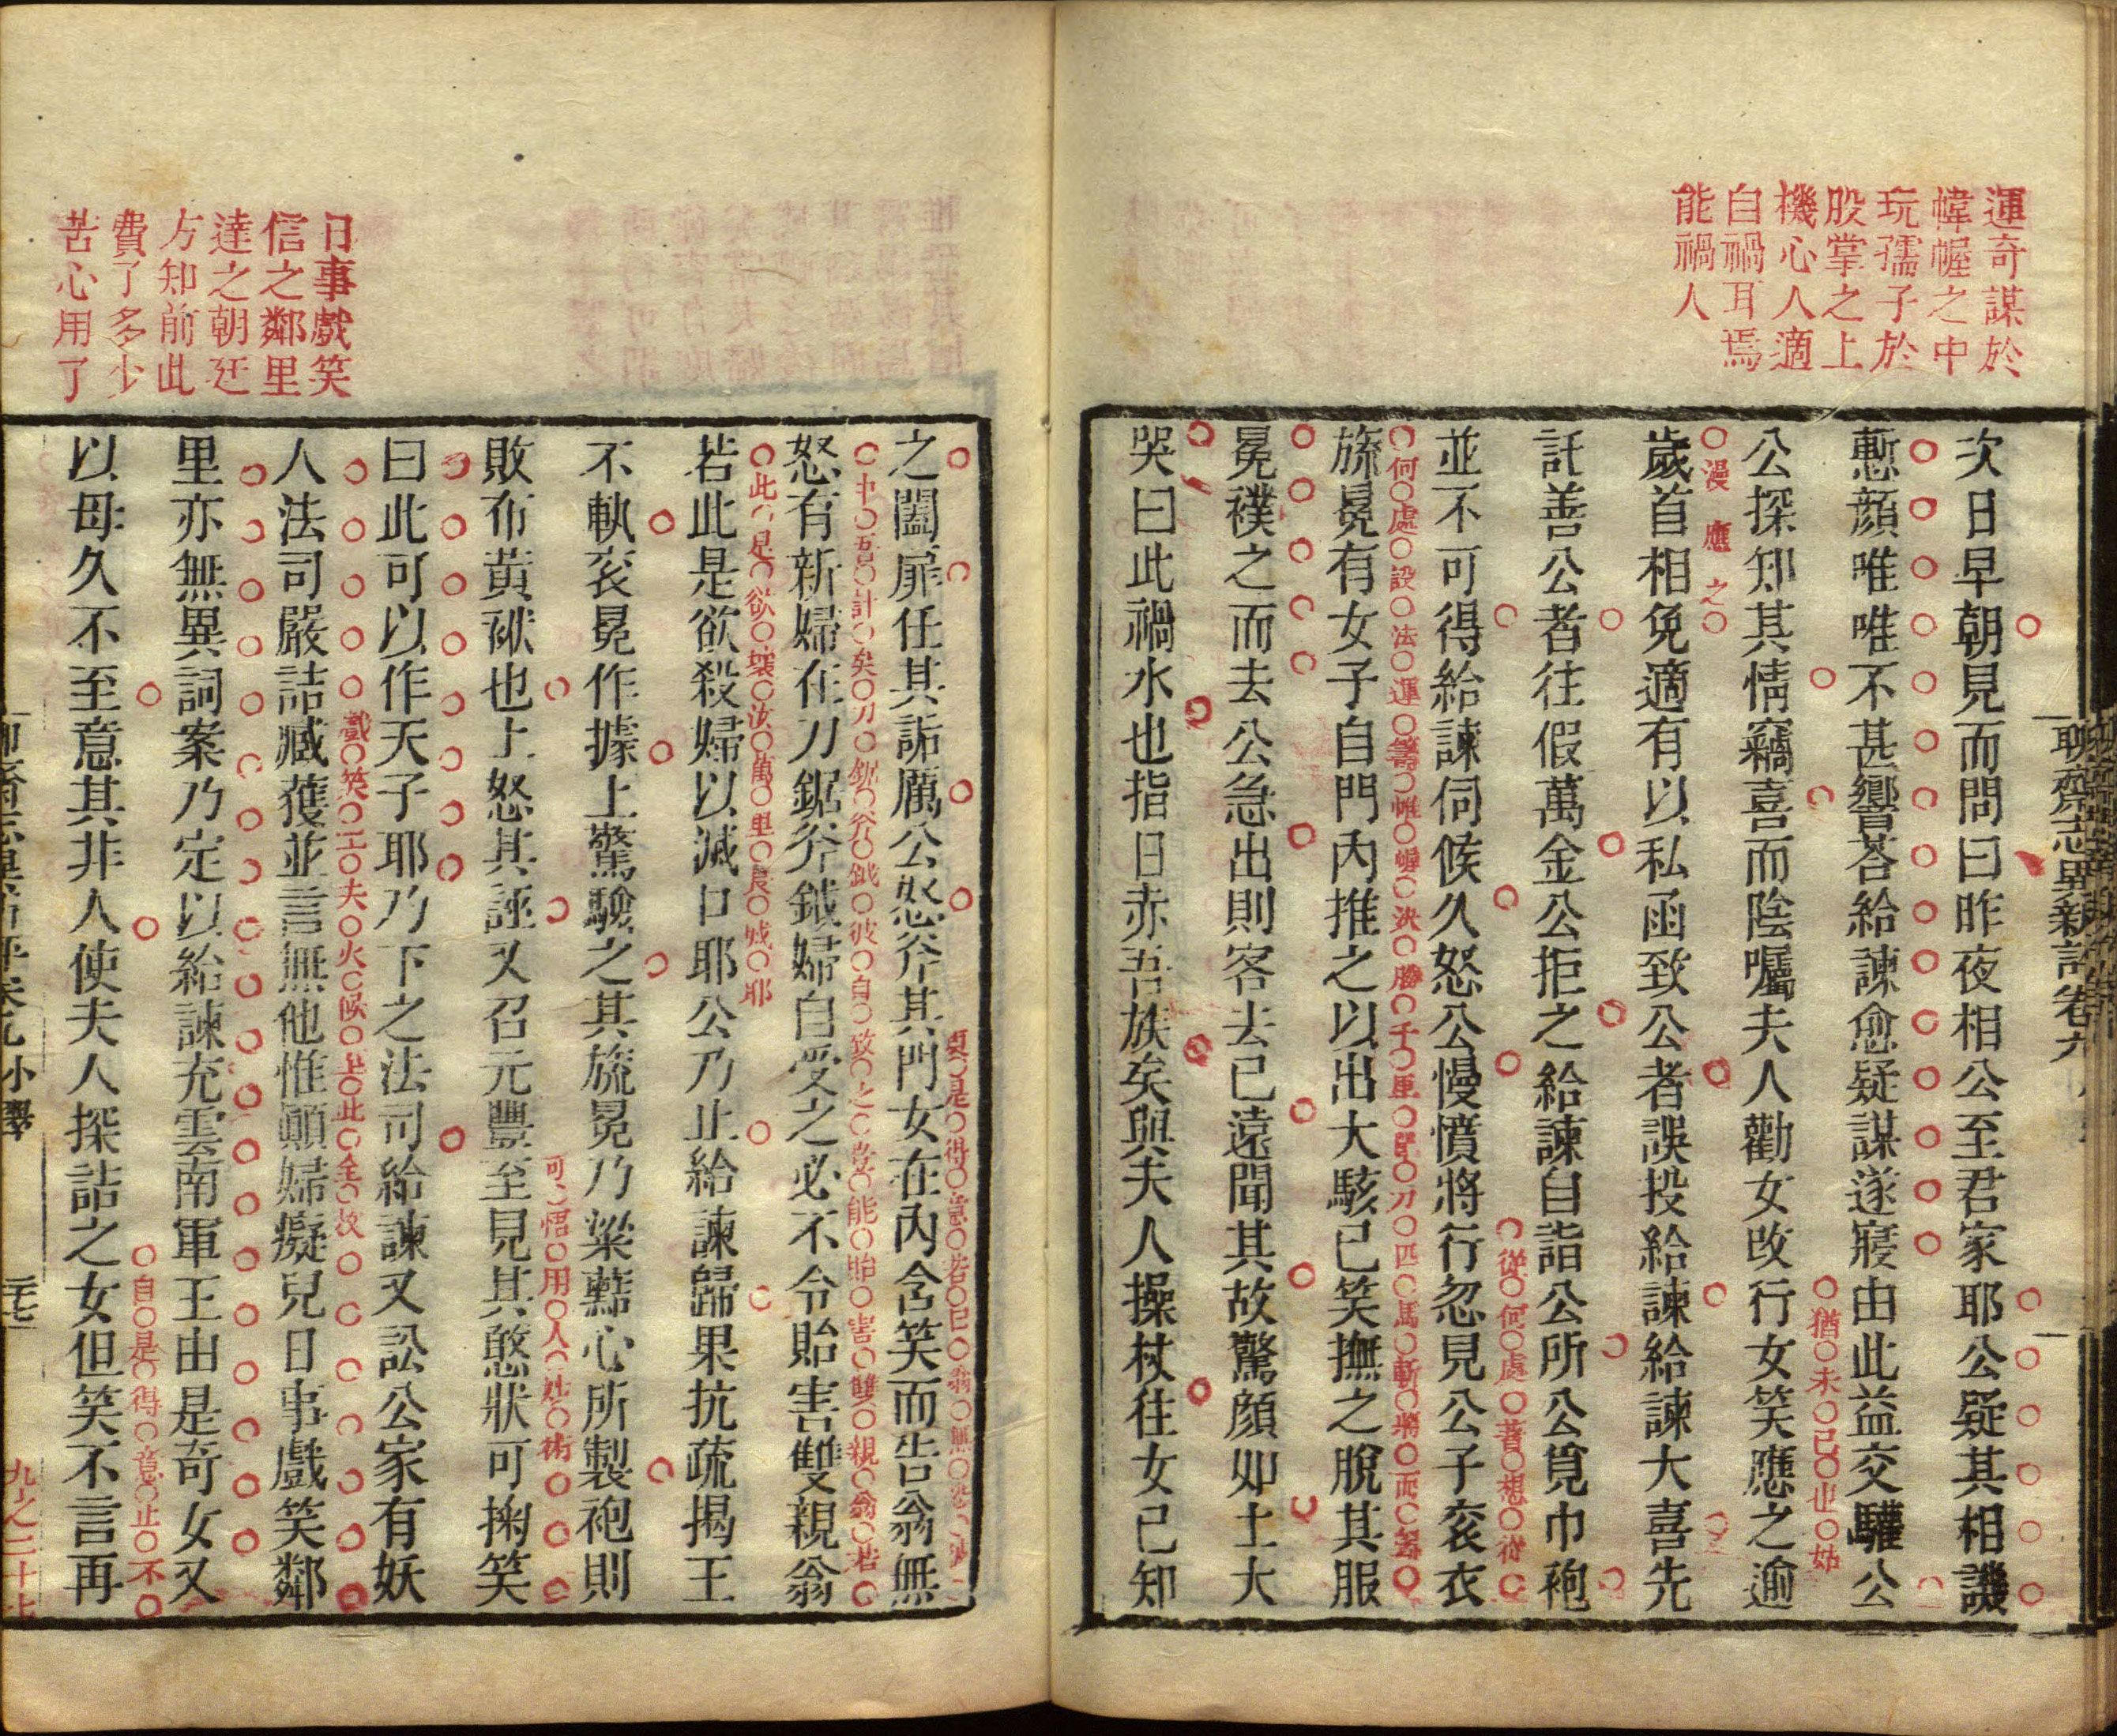 運奇謀於
幃幄之中
玩孺子於
股掌之上
機心人適
自禍耳焉
能禍人
次日早朝見而問曰昨夜相公至君家耶公疑其相譏
慙顏唯唯不甚響荅給諫愈疑謀遂寢由此益交驩公
猶未已也姑
公探知其情竊喜而陰囑夫人勸女改行女笑應之逾
漫應之
歲首相免適有以私函致公者誤投給諫給諫大喜先
託善公者往假萬金公拒之給諫自詣公所公覓巾袍
從何處著想從
並不可得給諫伺候久怒公慢憤將行忽見公子袞衣
何處設法運籌帷幄決勝千里單刀匹馬斬將而
旒冕有女子自門內推之以出大駭已笑撫之脫其服
冕襆之而去公急出則客去已遠聞其故驚顏如土大
哭曰此禍水也指日赤吾族矣與夫人操杖往女已知
聊齋志異新評卷九
之闔扉任其詬厲公怒斧其門女在內含笑而告翁無
中吾計矣刀鋸斧鉞彼自致之豈能貽害雙親翁若
怒有新婦在刀鋸斧鉞婦自受之必不令貽害雙親翁
此是欲壞汝萬里長城耶
若此是欲殺婦以滅口耶公乃止給諫歸果抗疏揭王
不軌袞冕作據上驚驗之其旒冕乃梁𪎭心所製袍則
可悟用人妙術
敗布黃袱也上怒其誣又召元豐至見其憨狀可掬笑
曰此可以作天子耶乃下之法司給諫又訟公家有妖
戲笑工夫火候上此全故
人法司嚴詰臧獲並言無他惟顚婦癡兒日事戲笑鄰
里亦無異詞案乃定以給諫充雲南軍王由是奇女又
自是得意止不
以母久不至意其非人使夫人探詰之女但笑不言再
日事戲笑
信之鄰里
達之朝廷
方知前此
費了多少
苦心用了
小翠
三七
九之三十七